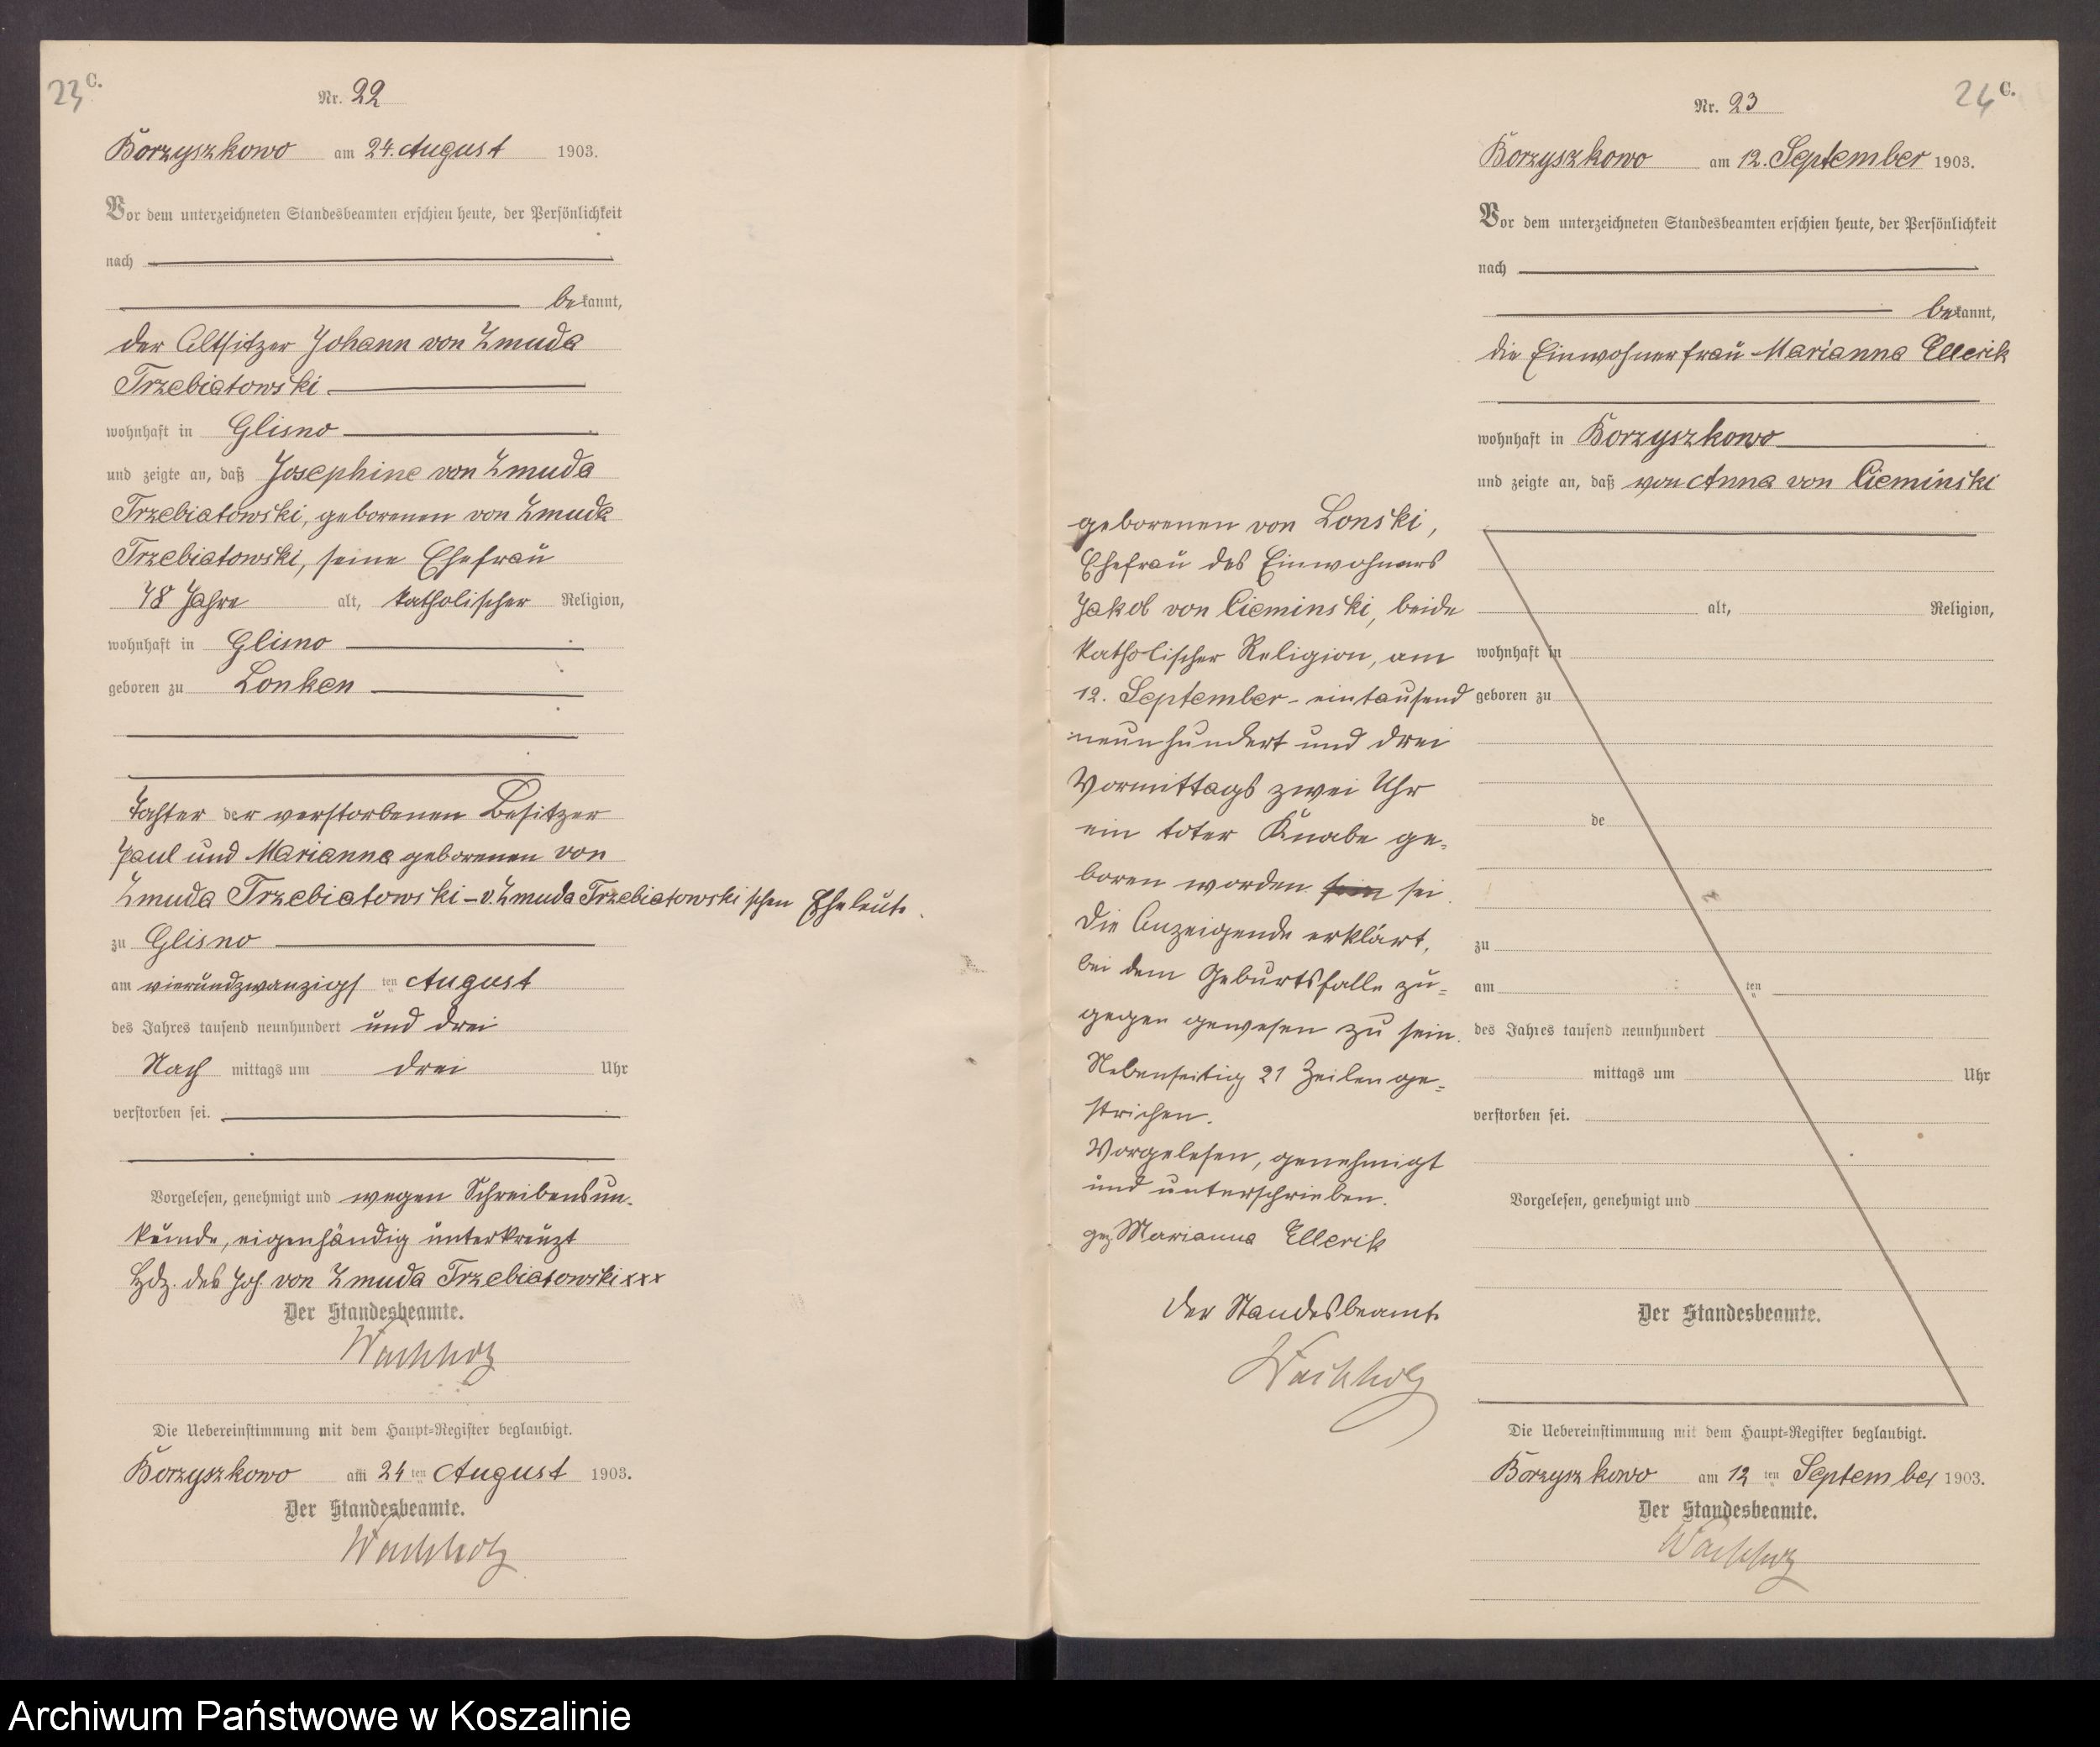 23 C.
Nr. 22
Borzyszkowo am 24. August 1903.
Vor dem unterzeichneten Standesbeamten erschien heute, der Persönlichkeit
nach
bekannt,
der Altsitzer Johann von Zmuda
Trzebiatowski
wohnhaft in Glisno
und zeigte an, daß Josephine von Zmuda
Trzebiatowski, geborenen von Zmuda
Trzebiatowski, seine Ehefrau
78 Jahre alt, katholischer Religion,
wohnhaft in Glisno
geboren zu Lonken
Tochter der verstorbenen Besitzer
Paul und Marianna geborenen von
Zmuda Trzebiatowski – v. Zmuda Trzebiatowski schen Eheleute
zu Glisno
am vierundzwanzigsten August
des Jahres tausend neunhundert und drei
Nach mittags um drei Uhr
verstorben sei.
Vorgelesen, genehmigt und wegen Schreibensun-
kunde, eigenhändig unterkreuzt
Hdz. des Joh. von Zmuda Trzebiatowski xxx
Der Standesbeamte.
Wachholz
Die Uebereinstimmung mit dem Haupt-Register beglaubigt.
Borzyszkowo am 24 ten August 1903.
Der Standesbeamte.
Wachholz
24 C.
Nr. 23
Borzyszkowo am 12. September 1903.
Vor dem unterzeichneten Standesbeamten erschien heute, der Persönlichkeit
nach
bekannt,
die Einwohnerfrau Marianna Ellerik
wohnhaft in Borzyszkowo
und zeigte an, daß von Anna von Cieminski
geborenen von Lonski,
Ehefrau des Einwohners
Jakob von Cieminski, beide
katholischer Religion, am
12. September - eintausend
neunhundert und drei
Vormittags zwei Uhr
ein toter Knabe ge-
boren worden sein sei.
Die Anzeigende erklärt,
bei dem Geburtsfalle zu-
gegen gewesen zu sein.
Nebenseitig 21 Zeilen ge-
strichen.
Vorgelesen, genehmigt
und unterschrieben.
gez. Marianna Ellerik
Der Standesbeamte
Wachholz
alt, Religion,
wohnhaft in
geboren zu
de
zu
am ten
des Jahres tausend neunhundert
mittags um Uhr
verstorben sei.
Vorgelesen, genehmigt und
Der Standesbeamte.
Die Uebereinstimmung mit dem Haupt-Register beglaubigt.
Borzyszkowo am 12 ten September 1903.
Der Standesbeamte.
Wachholz
Archiwum Państwowe w Koszalinie